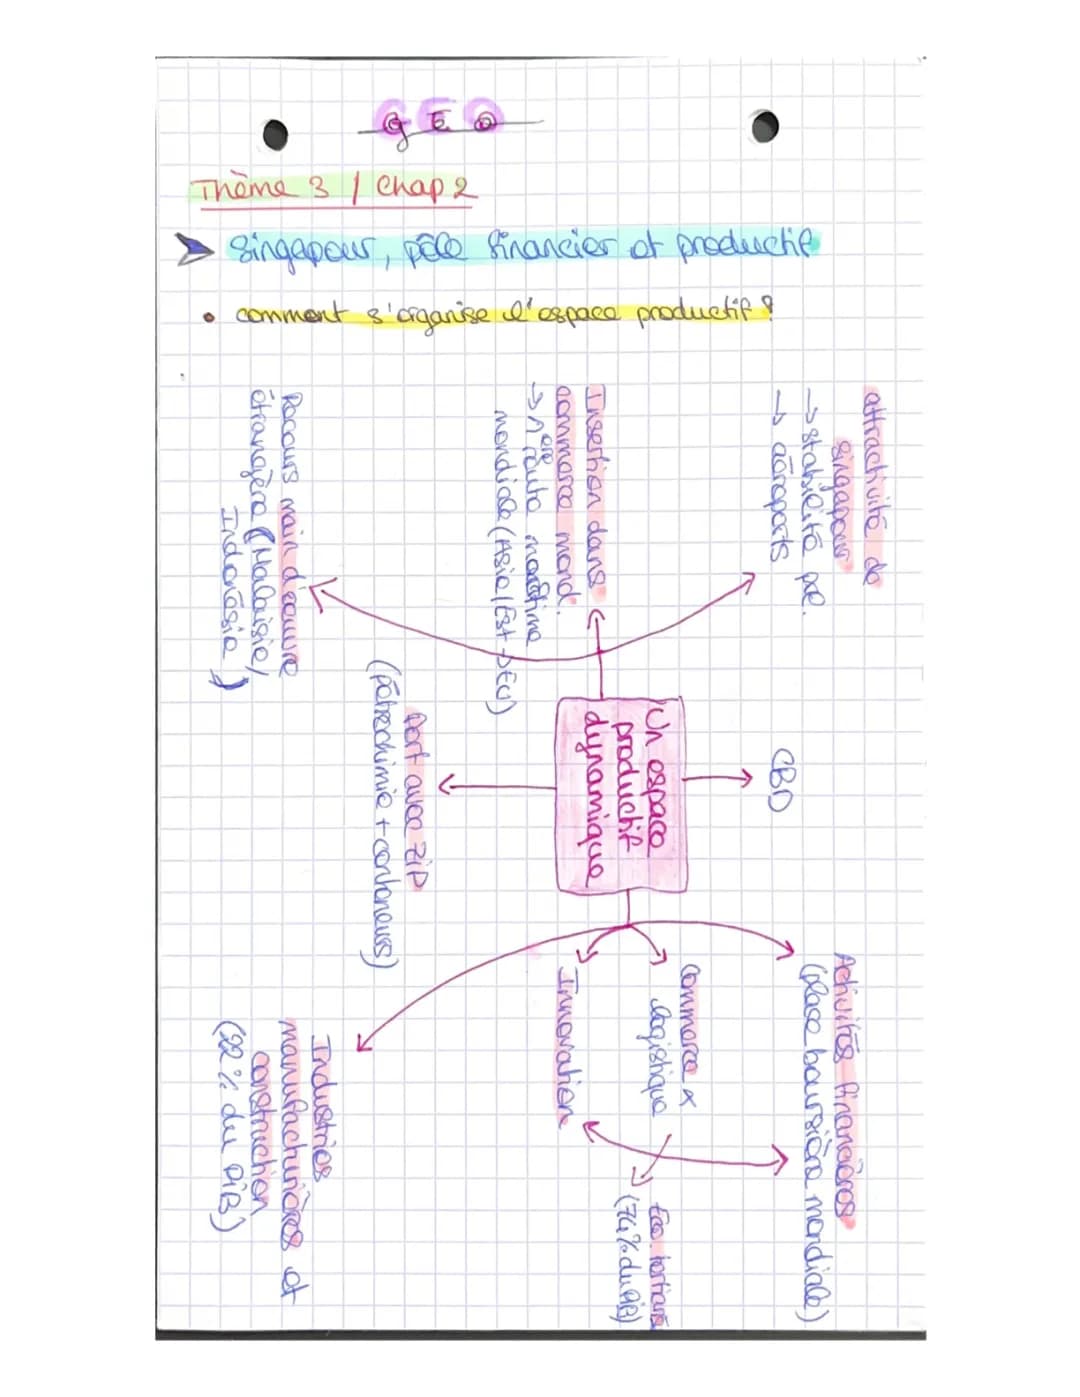 GEO
Thème 3 / Chap 2
Singapour, pôle financier et productif
• comment s'organise l'espace productif ?
attractivité de
singapour
→ stabilité pol.
→ aéroports
Insertion dans
commerce mond.
→ 1ère route maritime
mondiale (Asie/Est → EU)
Recours main d'œuvre
étrangère (Malaisie,
Indonésie)
CBD
Un espace
productif
dynamique
Port avec ZIP
(pétrochimie + conteneurs)
Activités financières
(place boursière mondiale)
Commerce &
logistique
Innovation
Eco. tertiaire
(74% du PIB)
Industries
manufacturières et
construction
(22% du PIB)